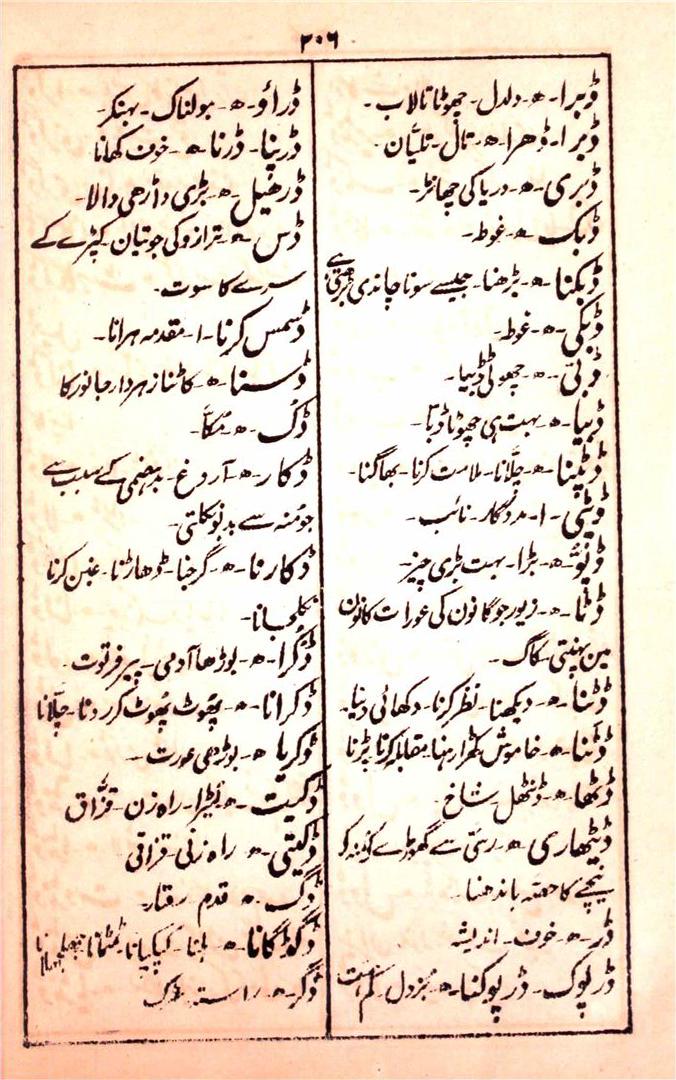 ۲۰۶
ڈبرا۔ھ۔دلدل۔چھوٹا تالاب۔
ڈبرا۔ڈھرا۔ھ۔تال۔تلیّان۔
ڈبری۔ھ۔دریا کی
ڈبک۔ھ۔غوطہ۔
ڈبکنا۔ھ۔بڑھنا۔جیسے سونا چاندی
ڈبکی۔ھ۔غوطہ۔
ڈبی۔ھ۔چھوٹی ڈبیا۔
ڈبیا۔ھ۔بہت ہی چھوٹا ڈبّا۔
ڈپٹنا۔ھ۔چلّانا۔ملامت کرنا۔بھاگنا۔
ڈپٹی۔ا۔مددگار۔نائب۔
ھ۔بڑا۔بہت بڑی چیز۔
ڈٹا۔ھ۔زیور جو گانون کی عورات کانون
مین پہنتی۔کاگ۔
ڈٹنا۔ھ۔دیکھنا۔نظر کرنا۔دکھائی دینا۔
ڈٹنا۔ھ۔خاموش کھڑا رہنا۔مقابلہ کرنا
ڈنٹھل۔شاخ۔
ڈیٹھاری۔ھ۔رسّی سے گھوڑے کے مُنہ کو
نیچے کا حصّہ باندھنا۔
ڈر۔ھ۔خوف۔اندیشہ
ڈرپوک۔ڈرپوکنا۔ھ۔بزدل۔کم ہمت
ڈراؤ۔ھ۔ہولناک۔بہنکر۔
ڈرپنا۔ڈرنا۔ھ۔خوف کھانا
ڈرھیل۔ھ۔بڑی داڑھی والا۔
ڈس۔ھ۔ترازو کی جوتیان۔کپڑے کے
سرے کا سوت۔
ڈسمس کرنا۔ا۔مقدمہ ہرانا۔
ڈسنا۔ھ۔کاٹنا زہردار جانور کا
ڈک۔ھ۔مکّا۔
ڈکار۔ھ۔آروغ۔بدہضمی کے سبب سے
جو مُنہ سے بدبو نکلتی۔
ڈکارنا۔ھ۔گرجنا۔ڈھاڑنا۔غبن کرنا
نگلجانا۔
ڈکرا۔ھ۔بوڑھا آدمی۔پیر فرتوت۔
ڈکرانا۔ھ۔پھوٹ پھوٹ کر رونا۔چلّانا
ڈوکریا۔ھ۔بوڑھی عورت۔
ڈکیت۔ھ۔لٹیرا۔راہ زن۔قزّاق
ڈکیتی۔ھ۔راہ زنی۔قزاقی
ڈگ۔ھ۔قدم۔رفتار۔
ڈگڈگانا۔ھ۔ہلنا۔کپکپانا۔ٹمٹمانا
ڈگر۔ھ۔راستہ۔سڑک